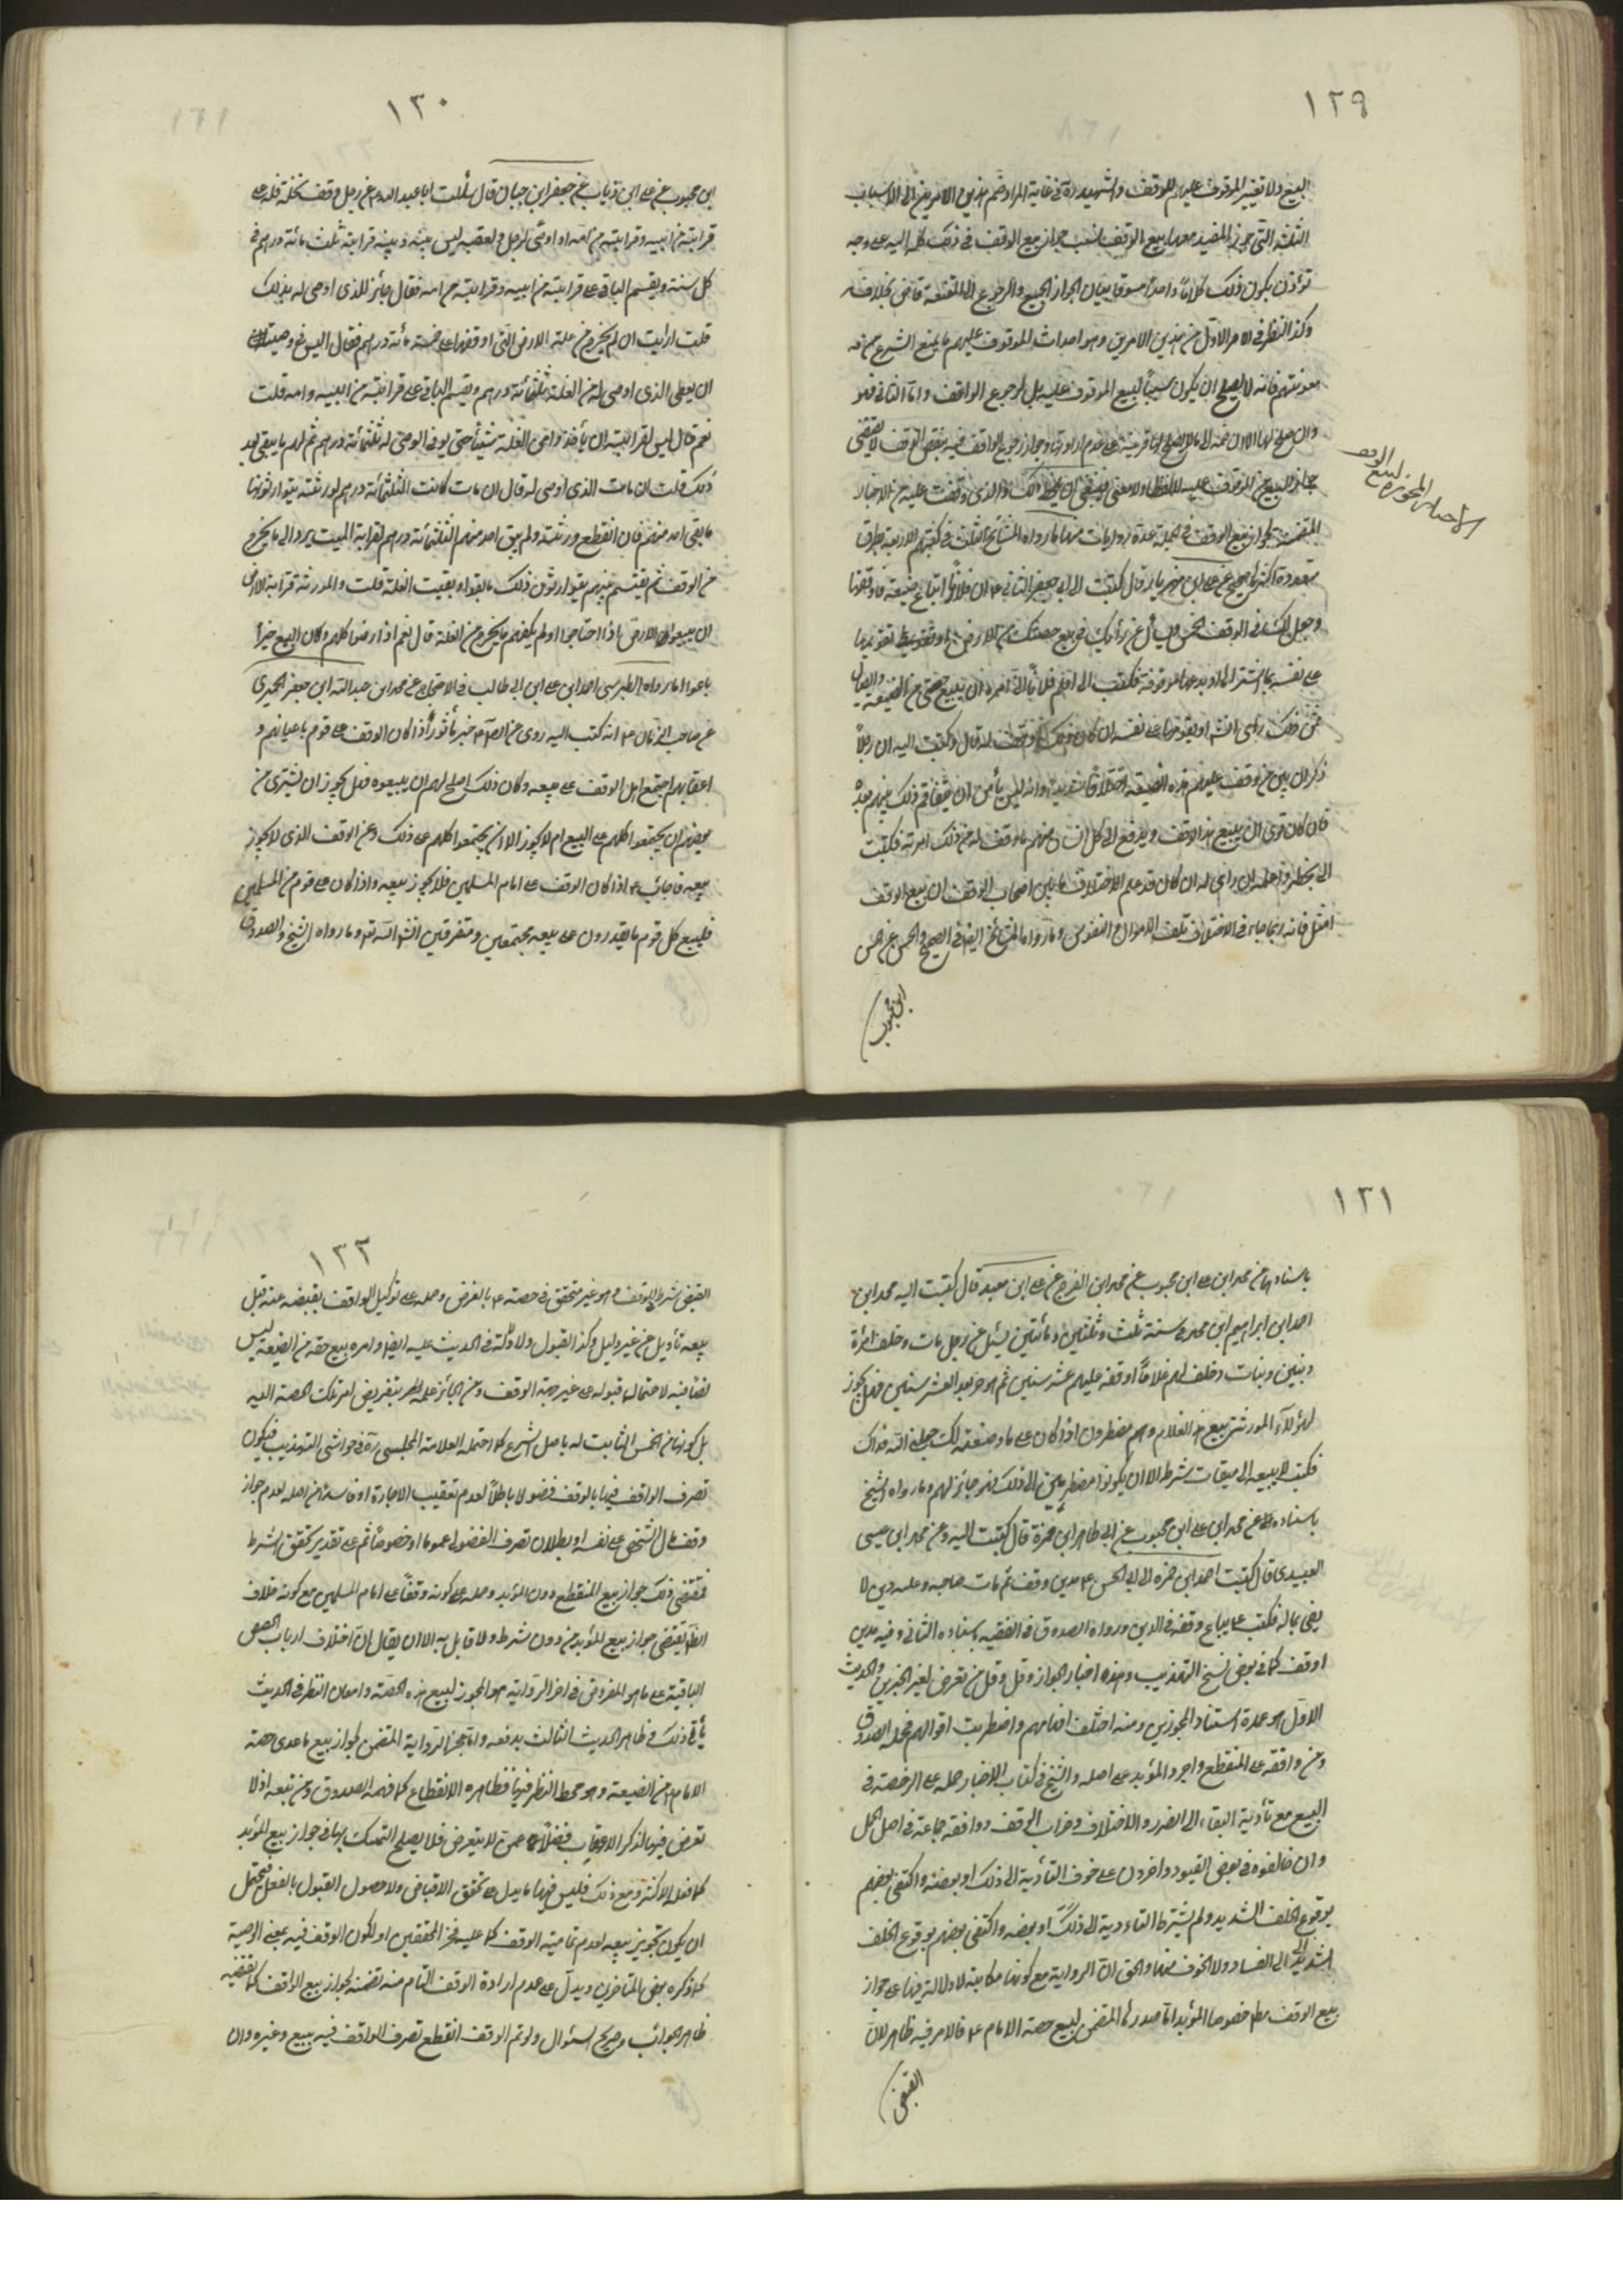 ١٢٩
البيع ولا تغيير الموقوف عليهم للوقف والشهيد ره في غاية المراد ضم هذين الامرين الى الاسباب
الثلثة التي جوز المفيد معها بيع الوقف فنسب جواز بيع الوقف في ذلك كله اليه على وجه
تؤذن بكون ذلك كلاماً واحداً مسوقا لبيان الجواز الجميع والرجوع الى المقنعة قاض بخلافه
وكذا النظر في الامر الاول من هذين الامرين وهو احداث الموقوف عليهم ما يمنع الشرع من
معونتهم فانه لا يصلح ان يكون سبباً لبيع الموقوف عليه بل لرجوع الواقف واما الثاني فهو
جواز البيع من الموقوف عليه لا لفظا ولا معنى فينبغي ان يلحظ ذلك والذي وقفت عليه من الاخبار
الاخبار المجوزة لبيع الوقف
المتضمنة لجواز بيع الوقف في الجملة عدة روايات منها ما رواه المشائخ الثلثة في كتبهم الاربعة بطرق
متعددة اكثرها صحيح عن علي ابن مهزيار قال كتبت الى ابي جعفر الثاني ع ان فلاناً ابتاع ضيعة فاوقفها
وجعل لك في الوقف الخمس ويسأل عن رأيك في بيع حصتك من الارض او تقويمها
على نفسه بما اشتراها او يدعها موقوفة فكتب الى اعلم فلاناً اني آمره ان يبيع حقي من الضيعة وايصال
ثمن ذلك الي وان ذلك رأيي انشاء الله او يقومها على نفسه ان كان ذلك اوفق له قال وكتبت اليه ان رجلاً
ذكر ان بين من وقف عليهم هذه الضيعة اختلافاً شديداً وانه ليس يأمن ان يتفاقم ذلك بينهم بعده
فان كان ترى ان يبيع هذا الوقف ويدفع الى كل انسان منهم ما وقف له من ذلك امرته فكتب
الي بخطه واعلمه ان رأيي له ان كان قد علم الاختلاف ما بين اصحاب الوقف ان بيع الوقف
امثل فانه ربما جاء في الاختلاف تلف الاموال والنفوس وما رواه المشائخ ايضا في الصحيح والحسن عن الحسن
ابن محبوب
١٣٠
ابن محبوب عن علي ابن رئاب عن جعفر ابن حيان قال سألت ابا عبد الله ع عن رجل وقف غلة له على
قرابته من ابيه وقرابته من امه او اوصى لرجل ولعقبه ليس بينه وبينه قرابة ثلث مائة درهم في
كل سنة ويقسم الباقي على قرابته من ابيه وقرابته من امه فقال جائز للذي اوصى له بذلك
قلت ارايت ان لم يخرج من غلة الارض التي اوقفها الا خمسة مائة درهم فقال اليس في وصيته
ان يعطى الذي اوصى له من الغلة ثلثمائة درهم ويقسم الباقي على قرابته من ابيه وامه قلت
نعم قال ليس لقرابته ان يأخذوا من الغلة شيئاً حتى يوفى الموصى له ثلثمائة درهم ثم لهم ما يبقى بعد
ذلك قلت ان مات الذي اوصى له قال ان مات كانت الثلثمائة درهم لورثته يتوارثونها
ما بقي احد منهم فان انقطع ورثته ولم يبق احد منهم الثلثمائة درهم لقرابة الميت يرد الى ما يخرج
من الوقف ثم يقسم بينهم يتوارثون ذلك ما بقوا وبقيت الغلة قلت والورثة قرابة الارض
ان يبيعوا الارض اذا احتاجوا ولم يكفهم ما يخرج من الغلة قال نعم اذا رضوا كلهم وكان البيع خيراً
باعوا وما رواه الطبرسي احمد ابن علي ابن ابي طالب في الاحتجاج عن محمد ابن عبد الله ابن جعفر الحميري
عن صاحب الزمان ع انه كتب اليه روي عن الصادق ع خبر مأثور اذا كان الوقف على قوم باعيانهم و
اعقابهم اجتمع اهل الوقف على بيعه وكان ذلك اصلح لهم ان يبيعوه فهل يجوز ان يشترى من
بعضهم ان لم يجتمعوا كلهم على البيع ام لا يجوز الا ان يجتمعوا كلهم على ذلك وعن الوقف الذي لا يجوز
بيعه فاجاب ع اذا كان الوقف على امام المسلمين فلا يجوز بيعه واذا كان على قوم من المسلمين
فليبع كل قوم ما يقدرون على بيعه مجتمعين ومتفرقين انشاء الله تع وما رواه الشيخ والصدوق
١٣١
باسنادهما عن محمد ابن علي ابن محبوب عن محمد ابن الفرج عن علي ابن معبد قال كتبت اليه محمد ابن
احمد ابن ابراهيم ابن محمد في سنة ثلث وثلثين ومائتين يسئل عن رجل مات وخلف امرأة
وبنين وبنات وخلف لهم غلاماً اوقفه عليهم عشر سنين ثم هو حر بعد العشر سنين فهل يجوز
لهؤلاء الورثة بيع هذا الغلام وهم مضطرون اذا كان على ما وصفته لك جعلني الله فداك
فكتب لا يبيعه الى ميقات شرطه الا ان يكونوا مضطرين الى ذلك فهو جائز لهم وما رواه الشيخ
باسناده عن محمد ابن علي ابن محبوب عن ابي طاهر ابن حمزة قال كتبت اليه وعن محمد ابن عيسى
العبيدي قال كتبت احمد ابن حمزة الى ابي الحسن ع مدين وقف ثم مات صاحبه وعليه دين لا
يفي بماله فكتب ع يباع وقفه في الدين ورواه الصدوق في الفقيه باسناده الثاني وفيه مدين
اوقف كما في بعض نسخ التهذيب وهذه اخبار الجواز وقل وقل من تعرض لغير الخبرين والحديث
الاول هو عمدة استناد المجوزين ومنه اختلف افهامهم واضطربت اقوالهم فحمله الصدوق
ومن وافقه على المنقطع واجروا المؤبد على اصله والشيخ في كتاب الاخبار حمله على الرخصة في
البيع مع تأدية البقاء الى الضرر والاختلاف وخراب الوقف ووافقه جماعة في اصل الحمل
وان خالفوه في بعض القيود واخرون على خوف التأدية الى ذلك او بعضه واكتفى بعضهم
بوقوع الخلف الشديد ولم يشترط التاءدية الى ذلك او بعضه واكتفى بعضهم بوقوع الخلف
الشديد الى الفساد ولا الخوف منها والحق ان الرواية مع كونها مكاتبة لا دلالة فيها على جواز
بيع الوقف مطم خصوصا المؤبد اما صدرها المتضمن لبيع حصة الامام ع فالامر فيه ظاهر لان
القبض
١٣٢
القبض شرط الوقف وهو غير متحقق في حصته ع بالفرض وحمله على توكيل الواقف بقبضه عنه قبل
بيعه تأويل من غير دليل وكذا القبول ولا دلالة في الحديث عليه ايضا وامره ببيع حقه من الضيعة ليس
نصا فيه لاحتمال قبوله على غير جهة الوقف ومن الجائز علمه بتفويض امر تلك الحصة اليه
بل كونها من الخمس الثابت له باصل الشرع كما احتمله العلامة المجلسي ره في حواشي التهذيب فيكون
تصرف الواقف فيها بالوقف فضولا باطلاً لعدم تعقيب الاجازة او فاسداً من اصله لعدم جواز
وقف مال الشخص على نفسه او بطلان تصرف الفضولي عموما او خصوصاً ثم على تقدير تحقق الشرط
فمقتضى ذلك جواز بيع المنقطع دون المؤبد وحمله على كونه وقفاً على امام المسلمين مع كونه خلاف
الظاهر يقتضي جواز بيع المؤبد من دون شرط ولا قابل به الا ان يقال ان اختلاف ارباب الحصص
الباقية على ما هو المفروض في اخر الرواية هو المجوز لبيع هذه الحصة وامعان النظر في الحديث
يأبى ذلك وظاهر الحديث الثالث يدفعه واما عجز الرواية المتضمن لجواز بيع ما عدى حصة
الامام ع من الضيعة وهو محط النظر فيها فظاهره الانقطاع كما فهمه الصدوق ومن تبعه اذ لا
تعرض فيها لذكر الاعقاب فضلاً عمن لا ينقرض فلا يصلح التمسك بها في جواز بيع المؤبد
كما فعله الاكثر ومع ذلك فليس فيها ما يدل على تحقق الاقباض ولا حصول القبول بالفعل فيحتمل
ان يكون تجويز بيعه لعدم تمامية الوقف كما عليه فخر المحققين او لكون الوقف فيه بمعنى الوصية
كما ذكره بعض المتاخرين ويدل على عدم ارادة الوقف التام منه تضمنه لجواز بيع الواقف كما يقتضيه
ظاهر الجواب وصريح السئوال ولو تم الوقف انقطع تصرف الواقف فيه ببيع وغيره وان